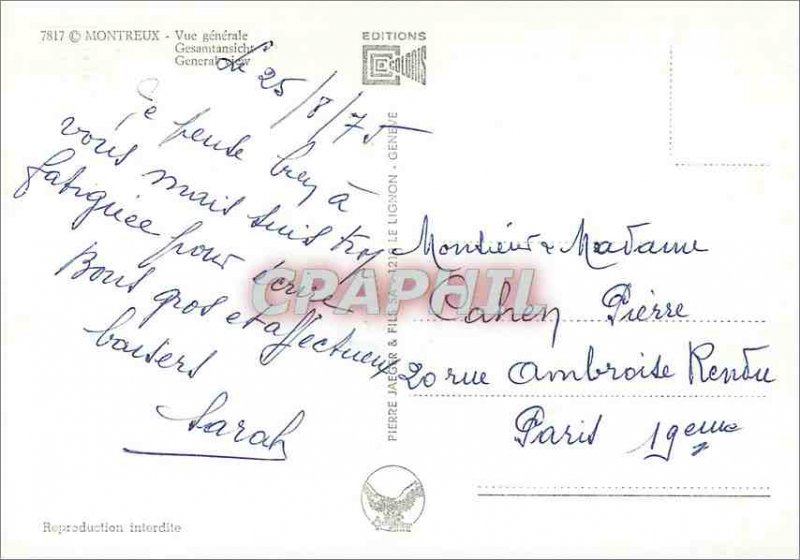 7817 © MONTREUX - Vue générale
Gesamtansicht
General view
Le 25/8/75
Je pense bien à
vous mais suis trop
fatiguée pour écrire
Bons gros et affectueux
baisers
Sarah
EDITIONS
PIERRE JAEGER & FILS SA - 1219 LE LIGNON - GENEVE
Monsieur & Madame
Cahen Pierre
20 rue Ambroise Rendu
Paris 19eme
CPAPHIL
Reproduction interdite